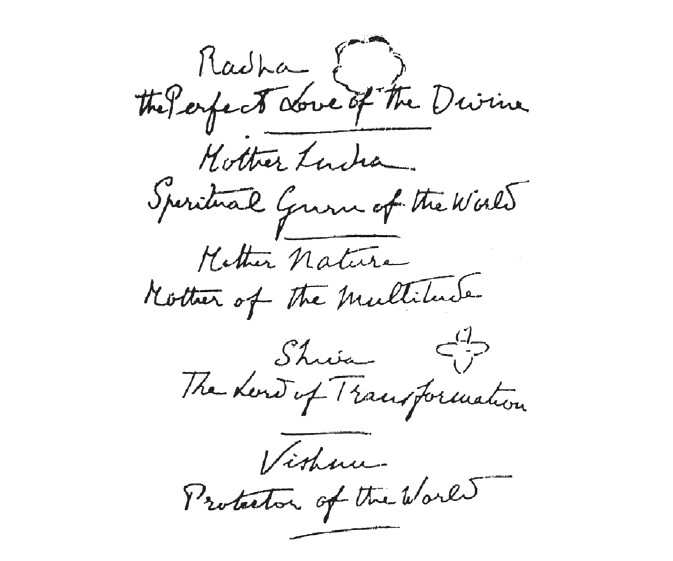 Radha
the Perfect Love of the Divine
Mother India.
Spiritual Guru of the World
Mother Nature
Mother of the Multitude
Shiva
The Lord of Transformation
Vishnu
Protector of the World